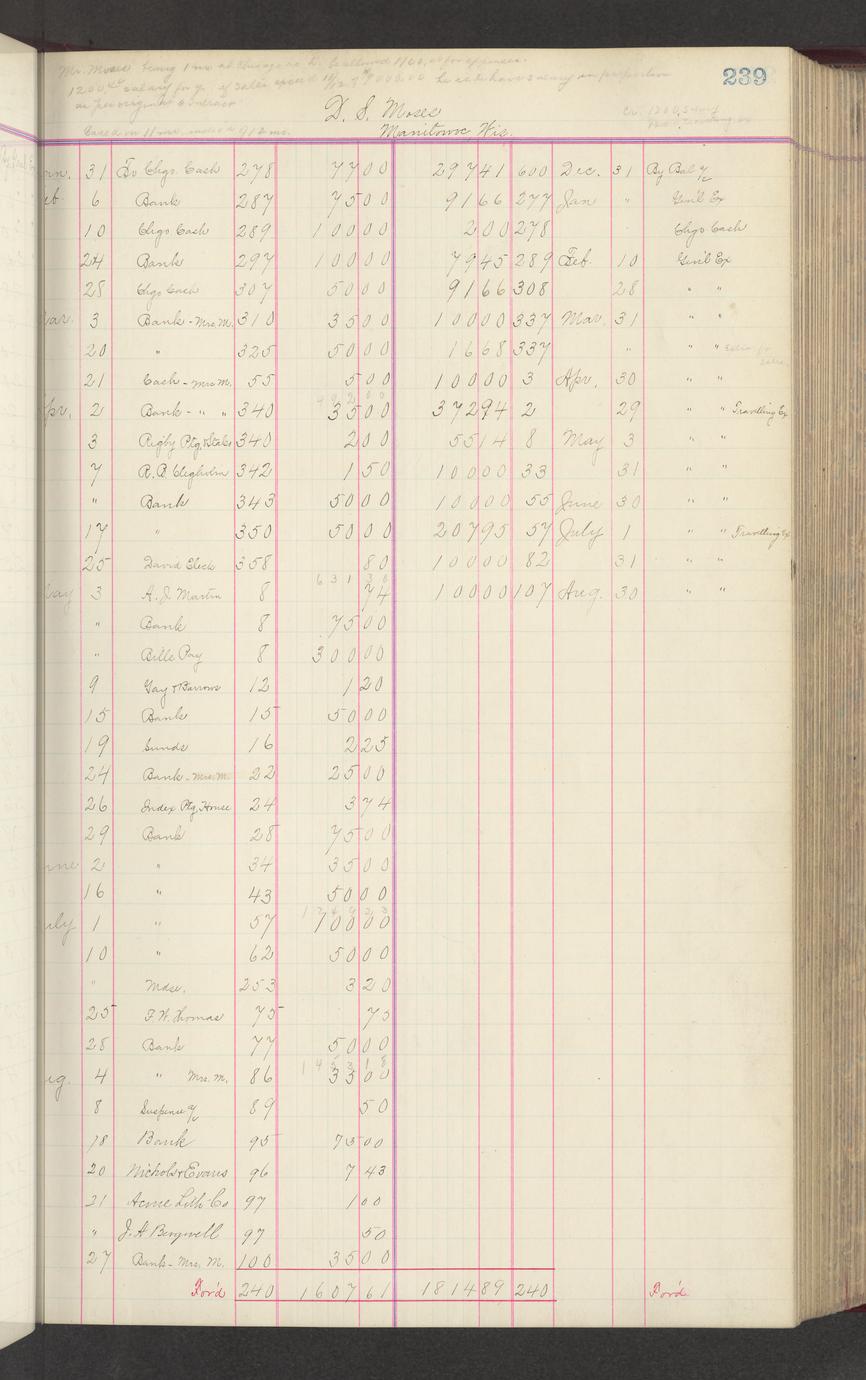 239
Mr. Moses being 1 mo. at Chicago
1200.00 salary for yr. if sales exceed
as per original contract
D. S. Moses
Manitowoc, Wis.
31 To Chgo. Cash 278 77 00 297 41 600 Dec. 31 By Bal a/c
6 Bank 287 75 00 91 66 277 Jan " Gen'l Ex
10 Chgo. Cash 289 100 00 2 00 278 Chgo Cash
24 Bank 297 100 00 79 45 289 Feb. 10 Gen'l Ex
28 Chgo Cash 307 50 00 91 66 308 28 " "
3 Bank - Mrs. M. 310 35 00 100 00 337 Mar. 31 " "
20 " 325 50 00 16 68 337 " " "
21 Cash - Mrs M. 55 5 00 100 00 3 Apr. 30 " "
2 Bank - " " 340 35 00 372 94 2 29 " " Travelling Ex
3 Rigby Ptg. & Sta Co 340 2 00 55 14 8 May 3 " "
7 R. B. Cleghorn 342 1 50 100 00 33 31 " "
" Bank 343 50 00 100 00 55 June 30 " "
17 " 350 50 00 207 95 57 July 1 " " Travelling Ex
25 David Eleck 358 80 100 00 82 31 " "
631 30
3 A. J. Martin 8 74 100 00 107 Aug. 30 " "
" Bank 8 75 00
" Bills Pay 8 300 00
9 Gay & Barrows 12 1 20
15 Bank 15 50 00
19 Sunds 16 2 25
24 Bank - Mrs. M. 22 25 00
26 Index Ptg. House 24 3 74
29 Bank 28 75 00
2 " 34 35 00
16 " 43 50 00
1 " 57 100 00
10 " 62 50 00
" Mdse. 253 3 20
25 F. W. Thomas 75 75
28 Bank 77 50 00
4 " Mrs. M. 86 35 00
8 Suspense a/c 89 50
18 Bank 95 75 00
20 Nichols & Evans 96 7 43
21 Acme Lith. Co 97 1 00
" 97 50
27 Bank - Mrs. M. 100 35 00
For'd 240 1607 61 1814 89 240 For'd